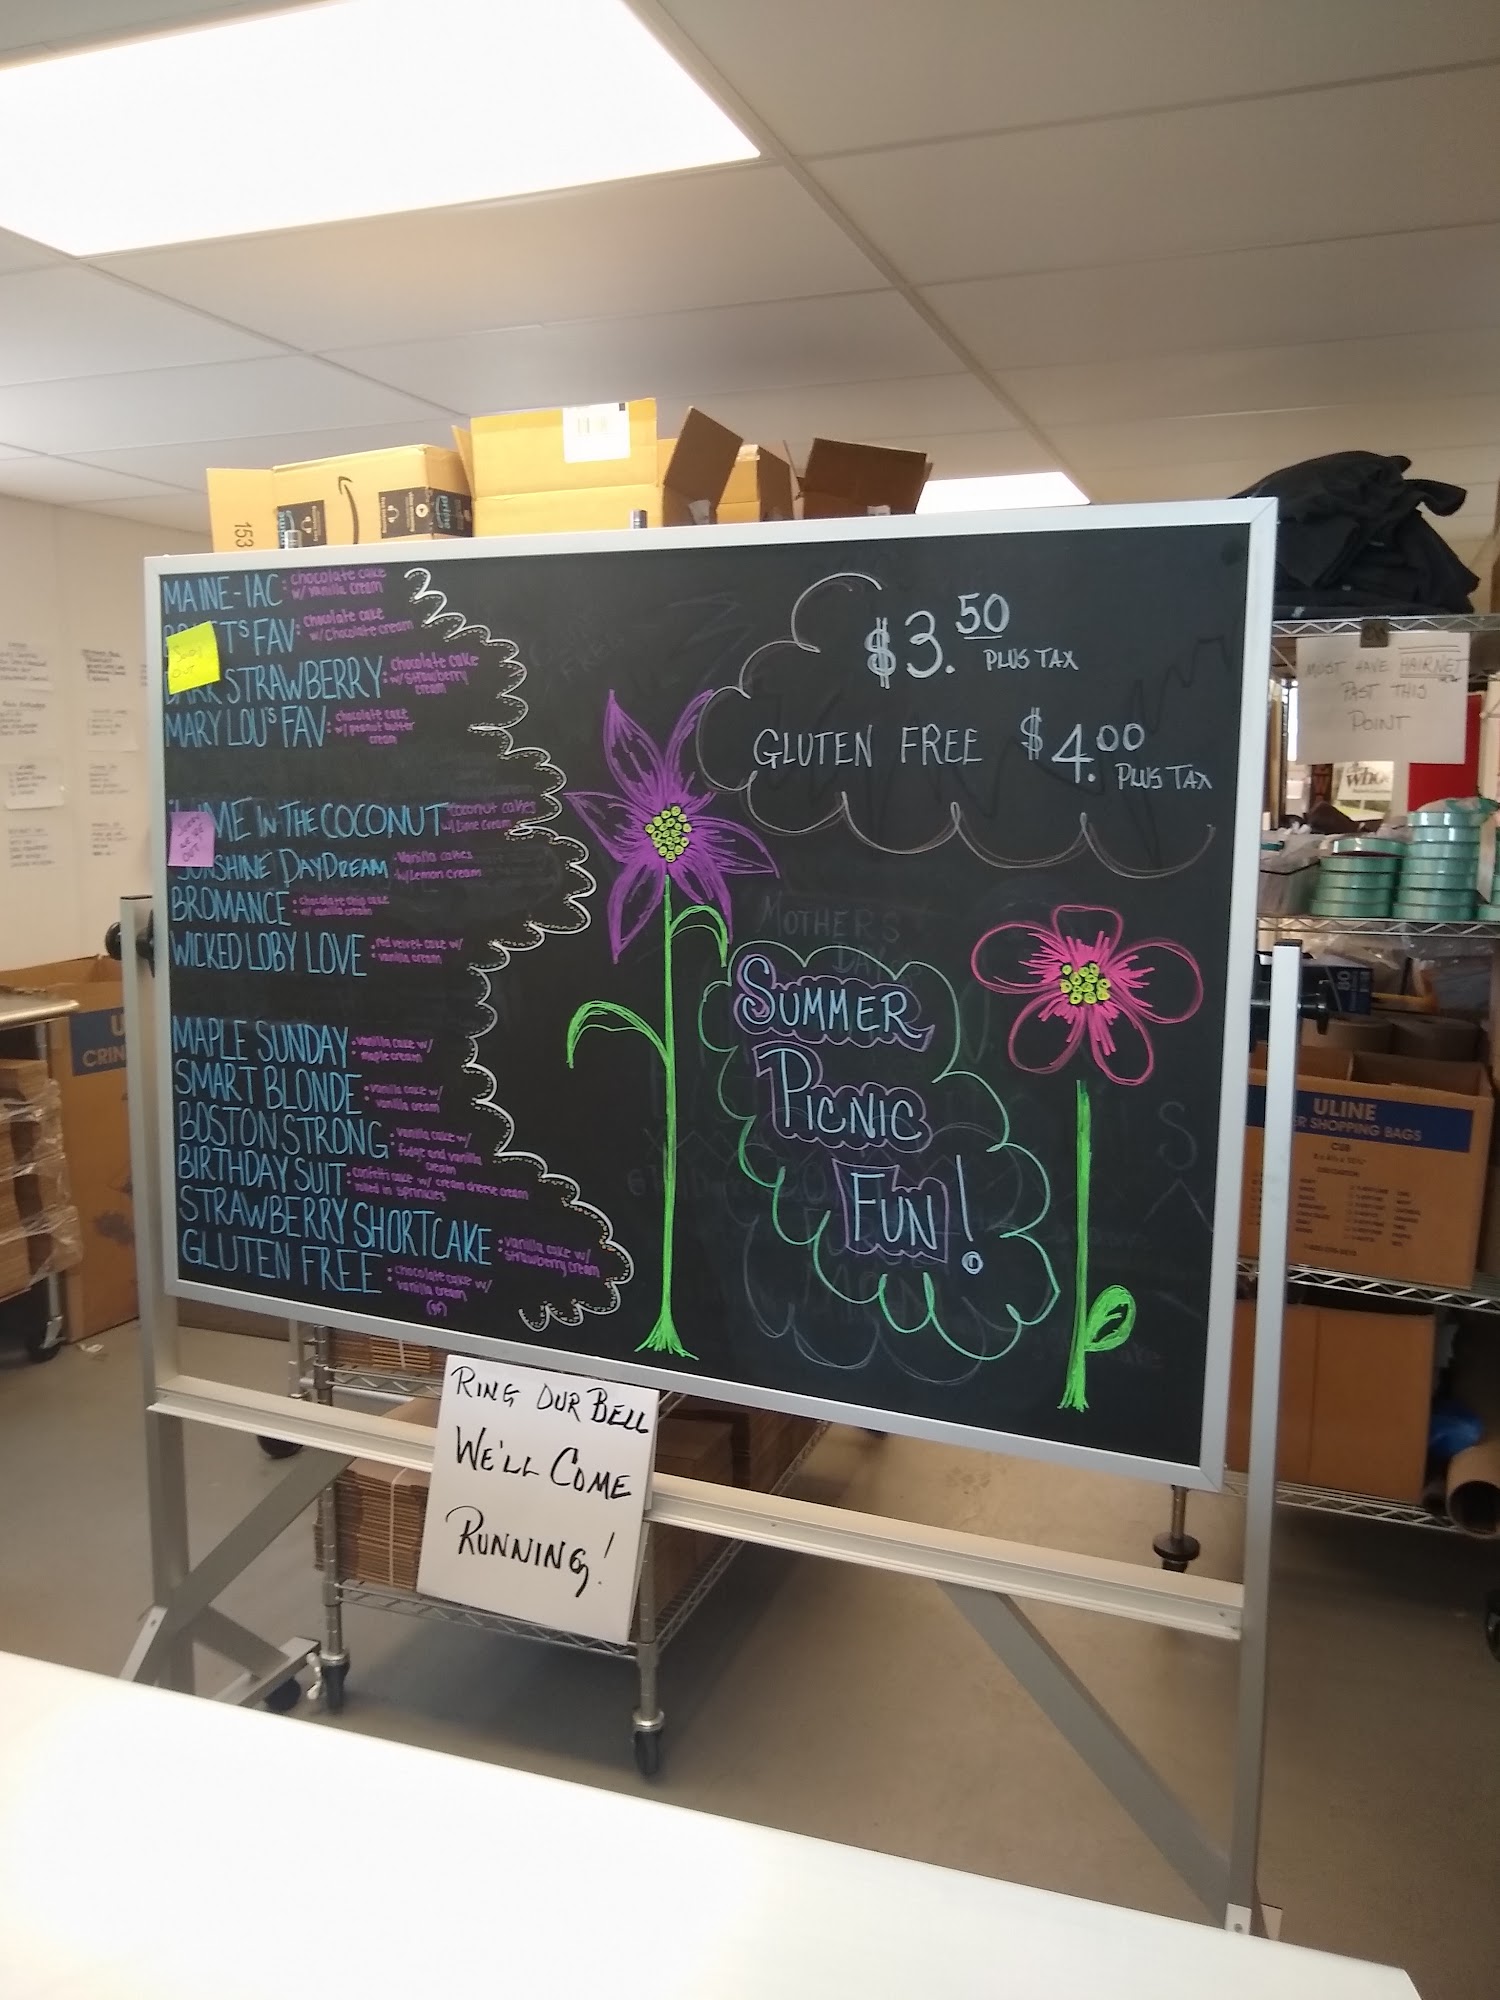 MAINE-IAC: chocolate cake
w/ vanilla cream
T'S FAV: chocolate cake
w/ chocolate cream
STRAWBERRY: chocolate cake
w/ strawberry
cream
MARY LOU'S FAV: chocolate cake
w/ peanut butter
cream
SOLD
OUT
IN THE COCONUT coconut cakes
w/ Lime Cream
DAYDREAM - Vanilla cakes
w/ Lemon Cream
OUT
BROMANCE: chocolate chip cake
w/ vanilla cream
WICKED LOBY LOVE: red velvet cake w/
vanilla cream
MAPLE SUNDAY: vanilla cake w/
maple cream
SMART BLONDE: vanilla cake w/
vanilla cream
BOSTON STRONG: vanilla cake w/
fudge and vanilla
cream
BIRTHDAY SUIT: confetti cake w/ cream cheese cream
rolled in sprinkles
STRAWBERRY SHORTCAKE: vanilla cake w/
strawberry cream
GLUTEN FREE: chocolate cake w/
vanilla cream
(gf)
$3.50
PLUS TAX
GLUTEN FREE $4.00
PLUS TAX
MOTHERS
DAY
SUMMER
PICNIC
FUN!
RING OUR BELL
WE'LL COME
RUNNING!
MUST HAVE HAIRNET
PAST THIS
POINT
153
prime
ULINE
SHOPPING BAGS
CUB
U
CRIN